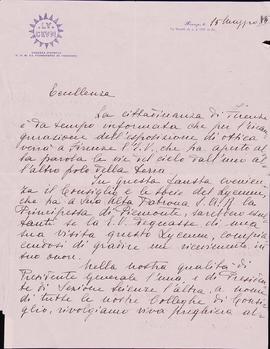 LY
CEVM
Firenze, li 15 Maggio
Eccellenza
La cittadinanza di Firenze
è da tempo informata che per l'inau
gurazione dell'esposizione di ottica
verrà a Firenze l'E.V. che ha aperto al
la parola le vie del cielo dall'uno al
l'altro polo della terra
In questa fausta evenien
za il Consiglio e le Socie del Lyceum,
che ha a sua Alta Patrona S.A.R. la
Principessa di Piemonte, sarebbero esul
tanti se la E.V. degnasse di una
sua visita questo Lyceum, compia
cendosi di gradire un ricevimento in
suo onore.
Nella nostra qualità di
Presidente Generale l'una, e di Presiden
te di Sezione Scienze l'altra, a nome
di tutte le nostre Colleghe di Consi
glio, rivolgiamo viva preghiera al